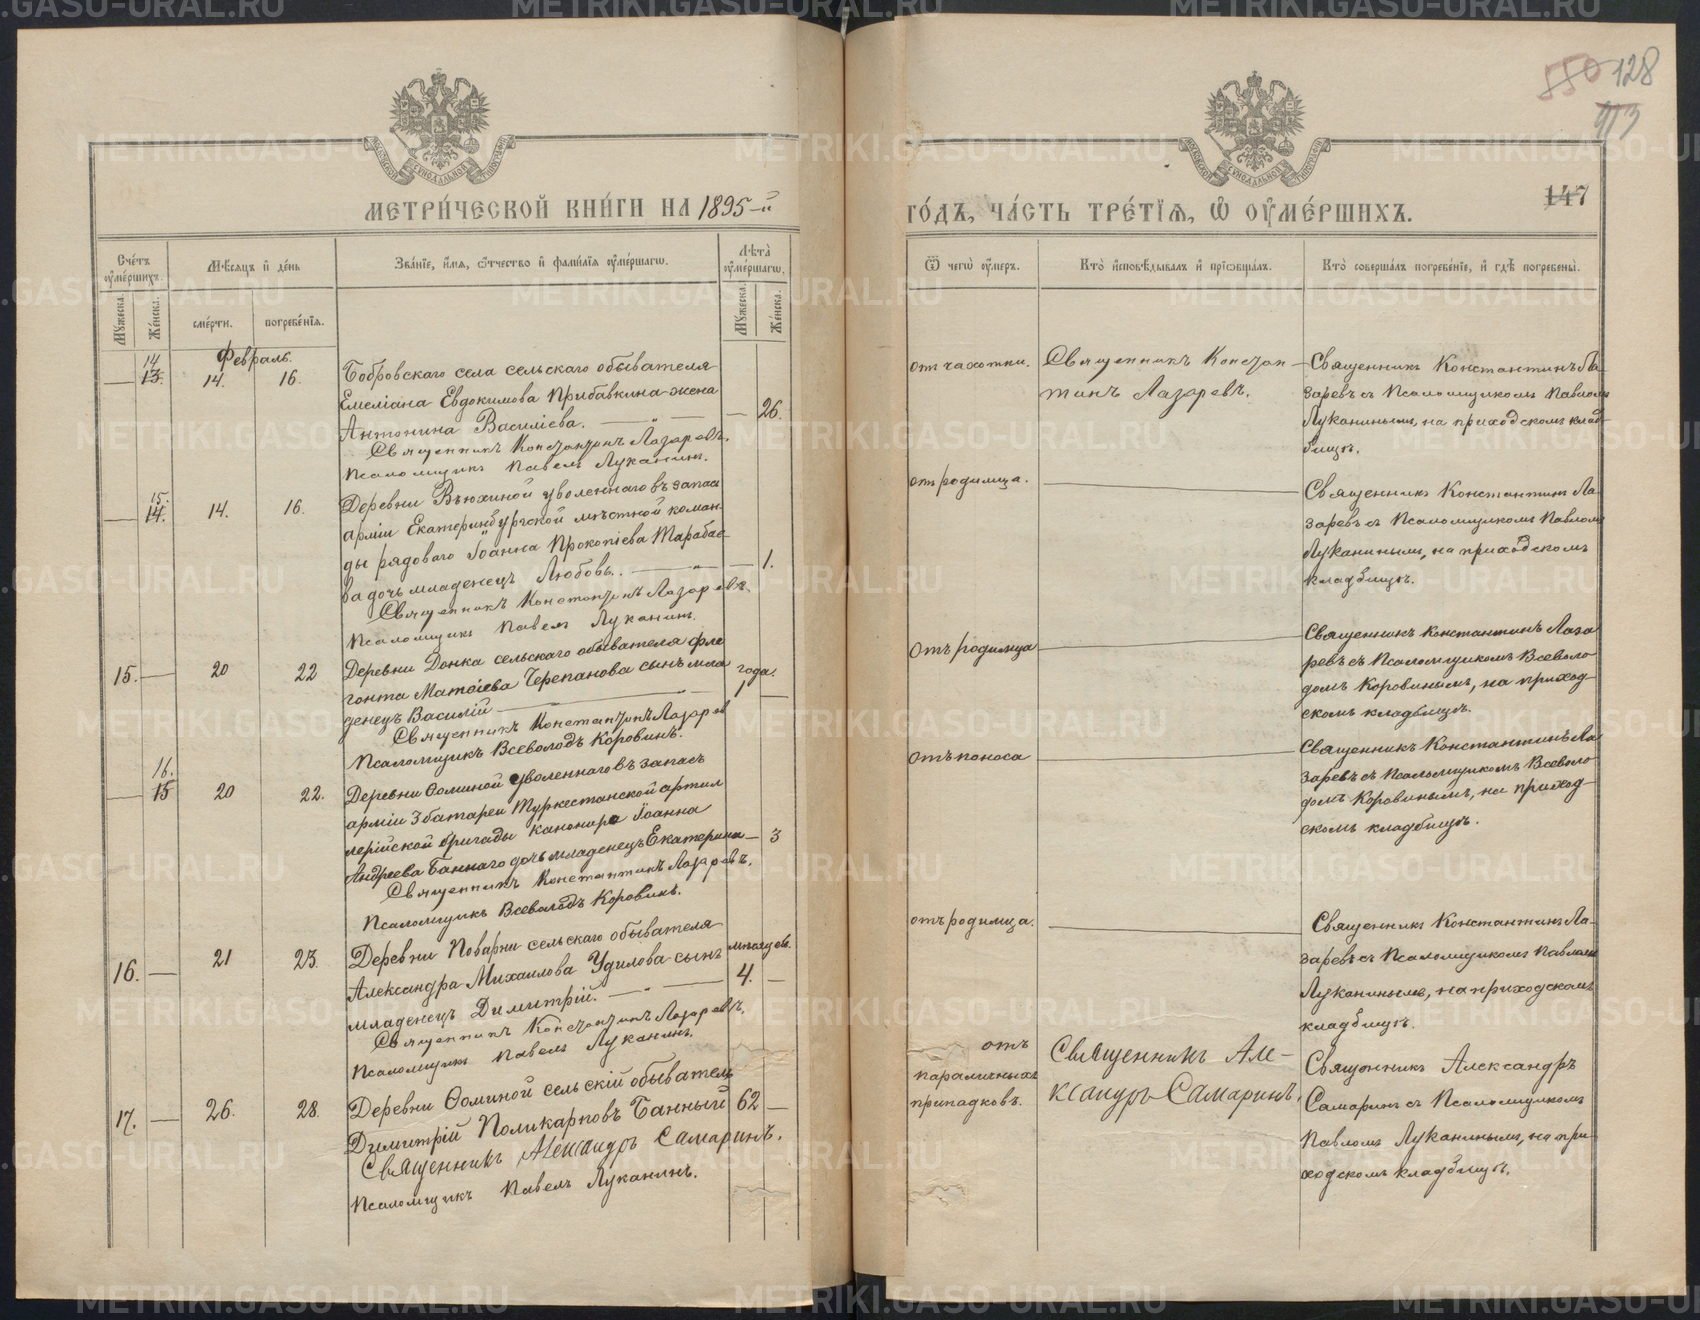 550 128
МЕТРИ́ЧЕСКОЙ КНИ́ГИ НА 1895-й
ГО́ДЪ, ЧА́СТЬ ТРЕ́ТЇѦ, Ѡ҆ ОУ҆МЕ́РШИХЪ.
147
Сче́тъ оу҆ме́ршихъ.
Мѣ́сяцъ и҆ де́нь
Зва́нїе, и҆́мя, ѻ҆́тчество и҆ фами́лїя оу҆ме́ршагѡ.
Лѣ́та оу҆ме́ршагѡ.
Ѿ чегѡ̀ оу҆́меръ.
Кто̀ и҆сповѣ́дывалъ и҆ прїѡбща́лъ.
Кто̀ соверша́лъ погребе́нїе, и҆ гдѣ̀ погребены̀.
Му́жеска.
Же́нска.
сме́рти.
погребе́нїѧ.
Му́жеска.
Же́нска.
Февраль.
— 14 13. 14. 16.
Бобровскаго села сельскаго обывателя
Емеліана Евдокимова Прибавкина жена
Антонина Василіева. — — 26.
Священникъ Константинъ Лазаревъ.
Псаломщикъ Павелъ Луканинъ.
отъ чахотки.
Священникъ Констан-
тинъ Лазаревъ.
Священникъ Константинъ Ла-
заревъ съ Псаломщикомъ Павломъ
Луканинымъ, на приходскомъ клад-
бищѣ.
— 15. 14. 14. 16.
Деревни Вьюхиной уволеннаго въ запас
арміи Екатеринбургской мѣстной коман-
ды рядоваго Іоанна Прокопіева Тарабае-
ва дочь младенецъ Любовь. — „ — 1.
Священникъ Константинъ Лазаревъ.
Псаломщикъ Павелъ Луканинъ.
отъ родимца.
Священникъ Константинъ Ла-
заревъ съ Псаломщикомъ Павломъ
Луканинымъ, на приходскомъ
кладбищѣ.
15. — 20 22
Деревни Донка сельскаго обывателя Фле-
гонта Матѳіева Черепанова сынъ мла
денецъ Василій — „ — года. 1 —
Священникъ Константинъ Лазарев
Псаломщикъ Всеволодъ Коровинъ.
Отъ родимца
Священникъ Константинъ Лаза
ревъ съ Псаломщикомъ Всеволо
домъ Коровинымъ, на приход-
скомъ кладбищѣ.
— 16. 15 20 22.
Деревни Ѳоминой уволеннаго въ запасъ
арміи 3 батареи Туркестанской артил
лерійской бригады канонира Іоанна
Андреева Баннаго дочь младенецъ Екатерина — 3
Священникъ Константинъ Лазаревъ.
Псаломщикъ Всеволодъ Коровинъ.
Отъ поноса
Священникъ Константинъ Ла
заревъ съ Псаломщикомъ Всеволо
домъ Коровинымъ, на приход-
скомъ кладбищѣ.
16. — 21 23.
Деревни Поварни сельскаго обывателя
Александра Михаилова Удилова сынъ мѣсяцев.
младенецъ Димитрій. — „ — 4. —
Священникъ Константинъ Лазаревъ.
Псаломщикъ Павелъ Луканинъ.
отъ родимца.
Священникъ Константинъ Ла-
заревъ съ Псаломщикомъ Павломъ
Луканинымъ, на приходскомъ
кладбищѣ.
17. — 26. 28.
Деревни Ѳоминой сельскій обыватель
Димитрій Поликарповъ Банный 62 —
Священникъ Александръ Самаринъ.
Псаломщикъ Павелъ Луканинъ.
отъ
параличныхъ
припадковъ.
Священникъ Але-
ксандръ Самаринъ.
Священникъ Александръ
Самаринъ съ Псаломщикомъ
Павломъ Луканинымъ, на при-
ходскомъ кладбищѣ.
METRIKI.GASO-URAL.RU